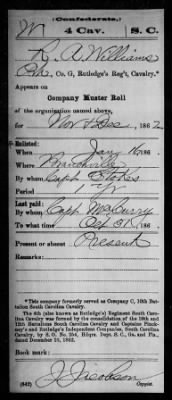 (Confederate.)
W 4 Cav. S.C.
R. A. Williams
Co. G, Rutledge's Reg't, Cavalry.*
Appears on
Company Muster Roll
of the organization named above,
for Nov & Dec, 1862
Enlisted:
When Jany 16, 186
Where Branchville
By whom Capt Stokes
Period 1 yr
Last paid:
By whom Capt Mulburry
To what time Oct 31, 186
Present or absent Present
Remarks:
*This company formerly served as Company C, 10th Battalion South Carolina Cavalry.
The 4th (also known as Rutledge's) Regiment South Carolina Cavalry was formed by the consolidation of the 10th and 12th Battalions South Carolina Cavalry and Captains Pinckney's and Rutledge's Independent Companies, South Carolina Cavalry, by S. O. No. 254, Hdqrs. Dept. S. C., Ga. and Fla., dated December 16, 1862.
Book mark:
(642) J Jacobson
Copyist.